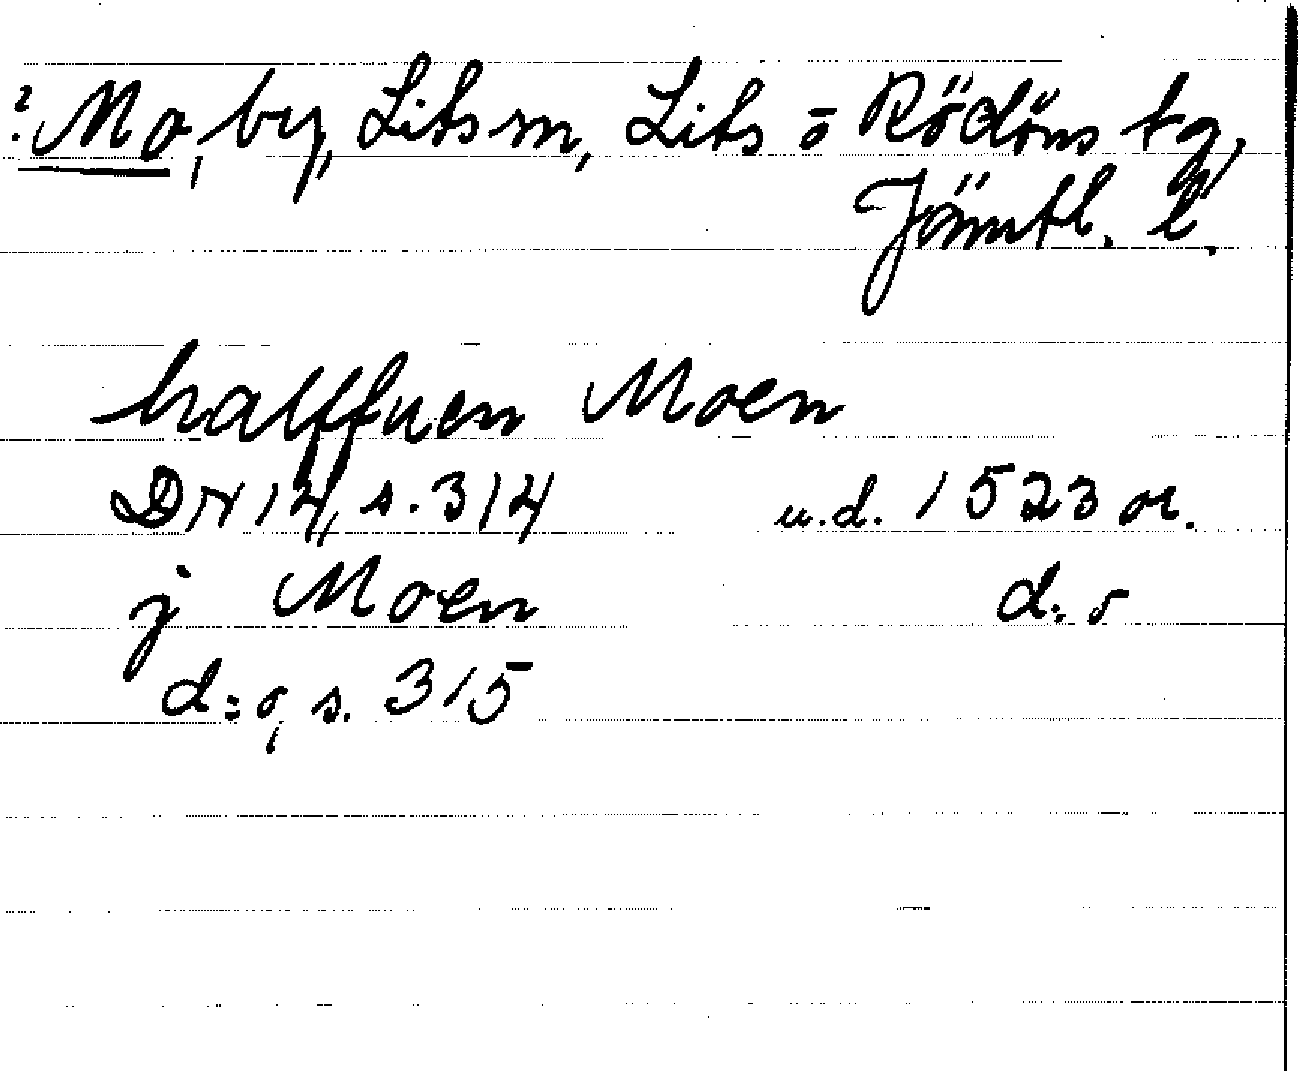 ? Mo, by, Lits sn, Lits o Rödöns tg,
Jämtl. l.
halffuen Moen
DN 14, s. 314 u.d. 1523 or.
j Moen d:o
d:o, s. 315